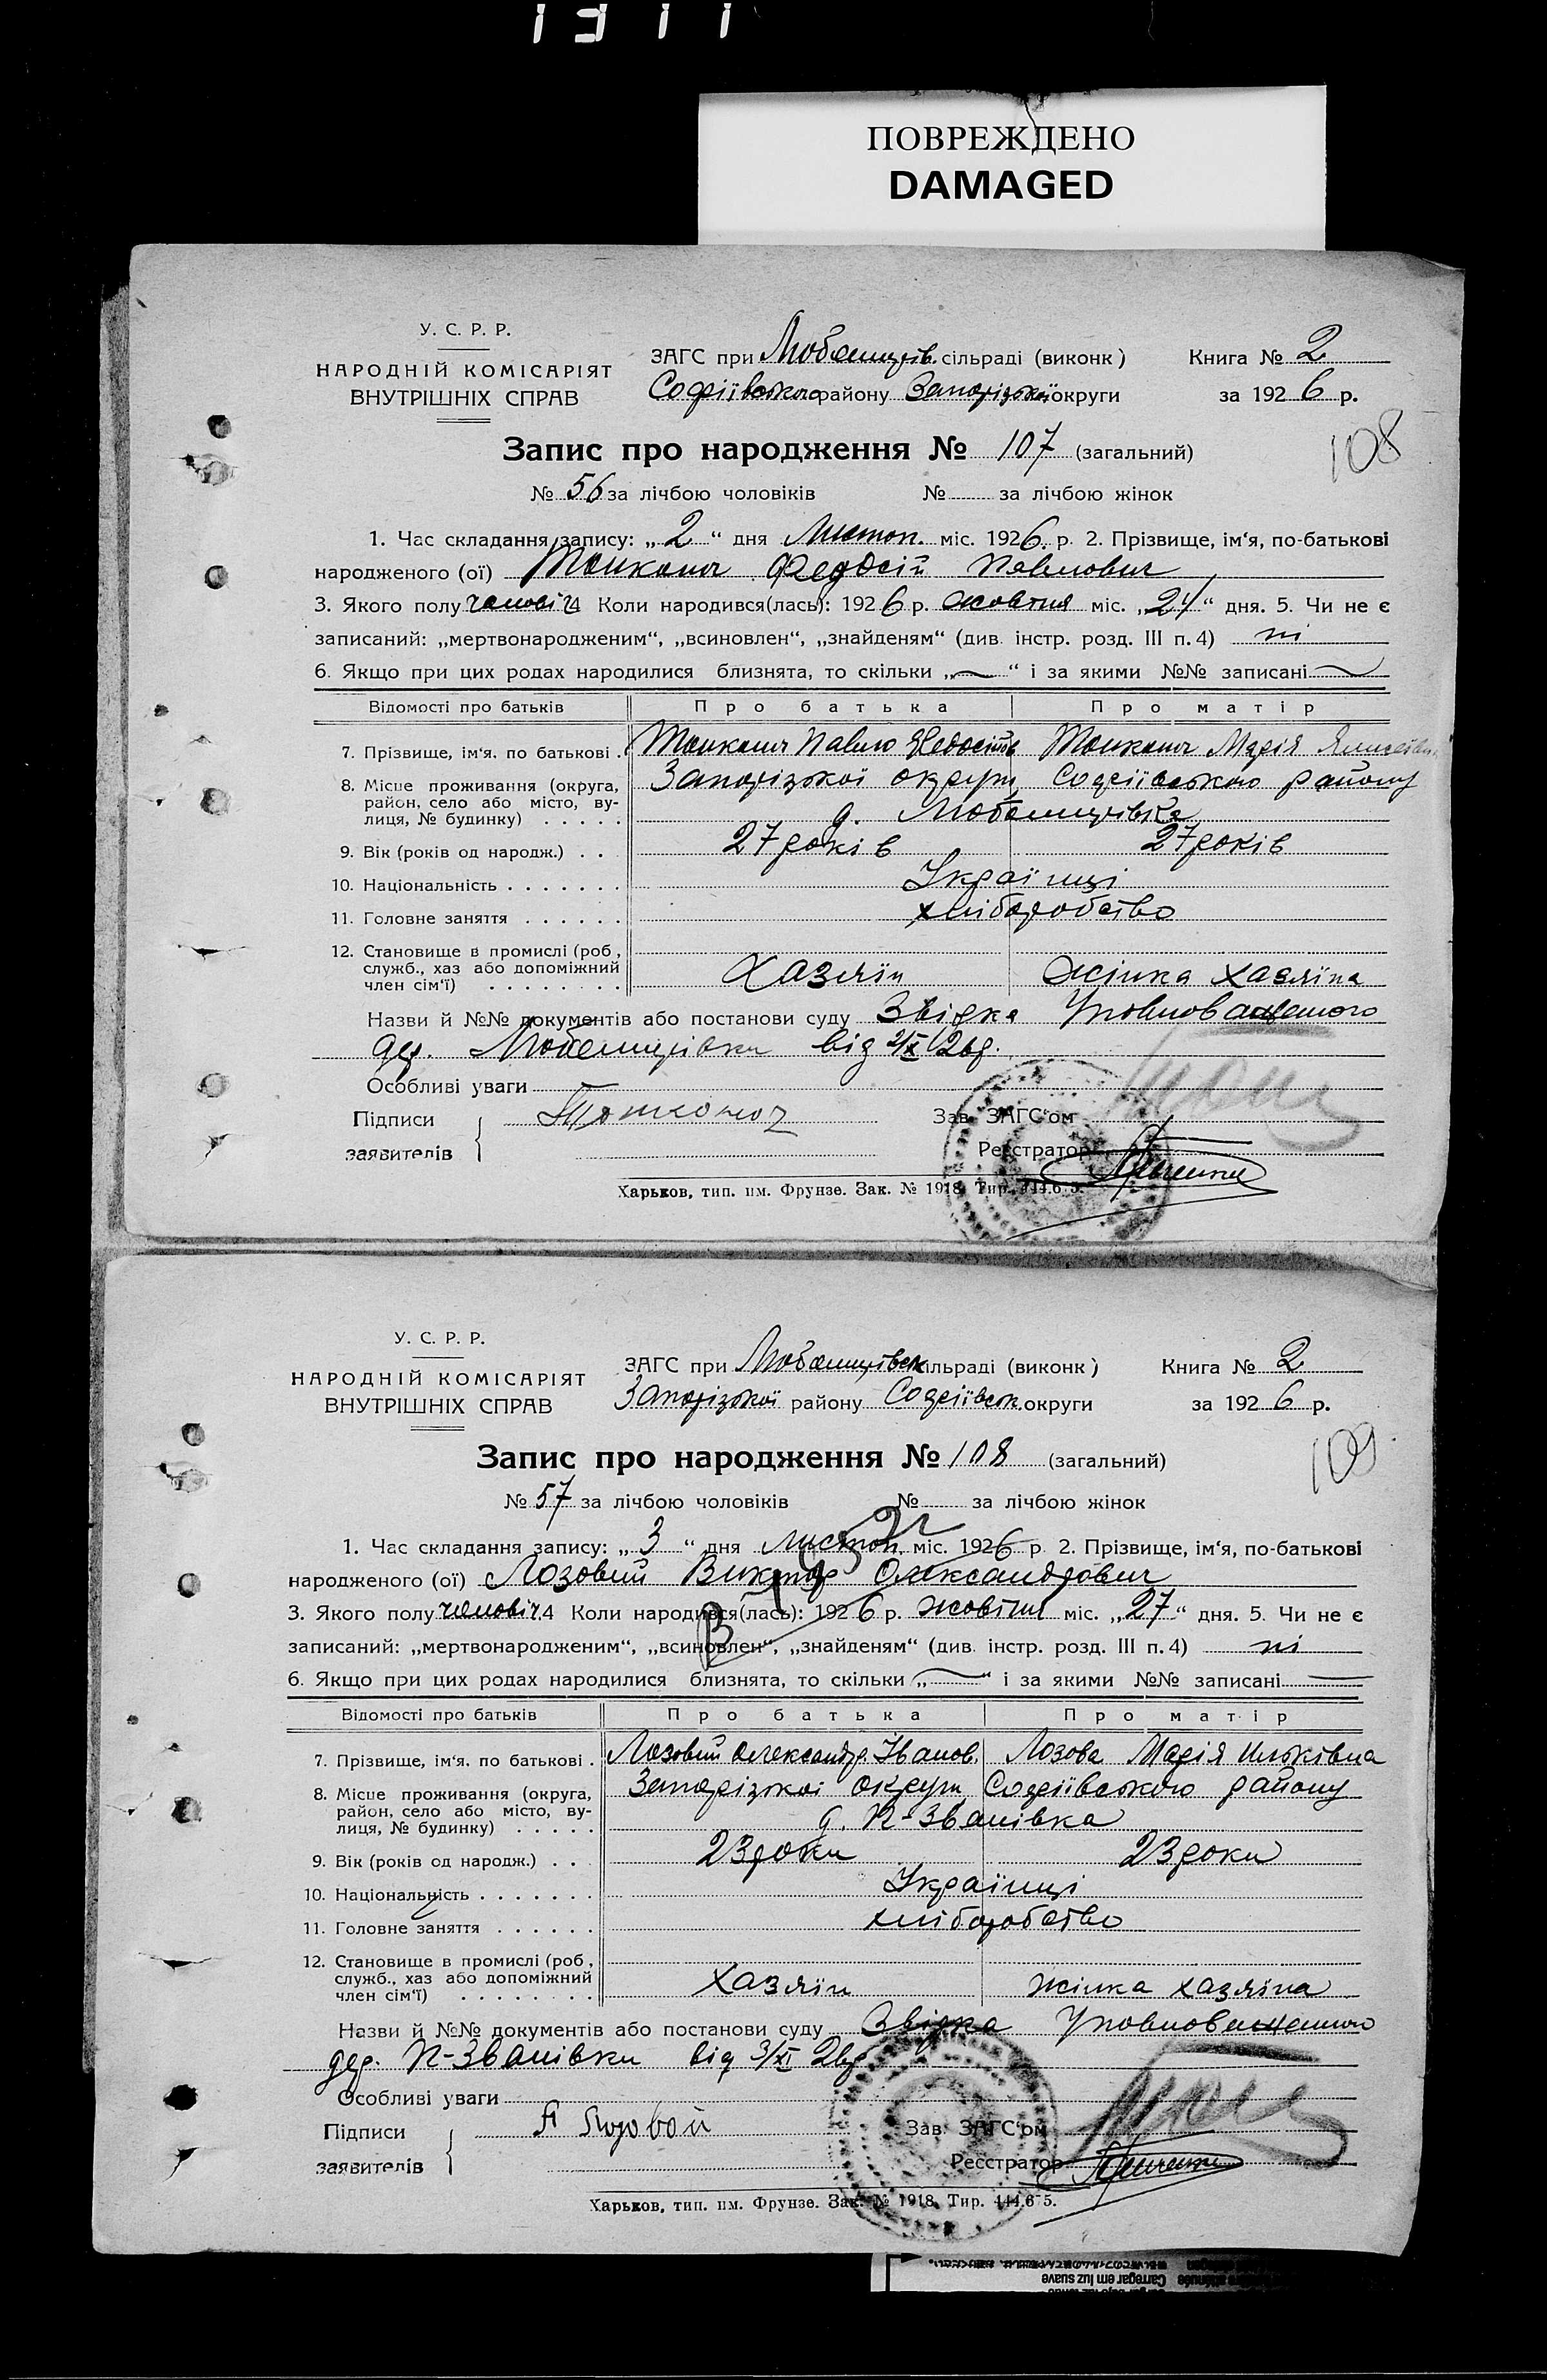 ПОВРЕЖДЕНО
DAMAGED
У. С. Р. Р.
НАРОДНІЙ КОМІСАРІЯТ
ВНУТРІШНІХ СПРАВ
ЗАГС при сільраді (виконк)
Софіївського району Запорізької округи
Книга № 2
за 1926 р.
108
Запис про народження № 107 (загальний)
№ 56 за лічбою чоловіків № за лічбою жінок
1. Час складання запису: „2“ дня Листоп. міс. 1926. р. 2. Прізвище, ім‘я, по-батькові
народженого (ої) Федосій Павлович
3. Якого полу чоловіч. 4 Коли народився(лась): 1926 р. жовтня міс. „24“ дня. 5. Чи не є
записаний: „мертвонародженим“, „всиновлен“, „знайденям“ (див. інстр. розд. III п. 4) ні
6. Якщо при цих родах народилися близнята, то скільки „—“ і за якими №№ записані —
Відомості про батьків Про батька Про матір
7. Прізвище, ім‘я, по батькові . Павло Федосійов Марія
8. Місце проживання (округа, район, село або місто, вулиця, № будинку) . . . . . Запорізької округи, Софіївського району
д.
9. Вік (років од народж.) . . 27 років 27 років
10. Національність . . . . . . . Українці
11. Головне заняття . . . . . . хліборобство
12. Становище в промислі (роб., служб., хаз або допоміжний член сім‘ї) . . . . . . . . Хазяїн жінка хазяїна
Назви й №№ документів або постанови суду Звідка Уповноваженого
дер. від 2/XI 26р.
Особливі уваги
Підписи
заявителів
Зав. ЗАГС‘ом
Реєстратор
Харьков, тип. им. Фрунзе. Зак. № 1918. Тир. 444.675.
У. С. Р. Р.
НАРОДНІЙ КОМІСАРІЯТ
ВНУТРІШНІХ СПРАВ
ЗАГС при сільраді (виконк)
Запорізької району Софіївськ. округи
Книга № 2
за 1926 р.
109
Запис про народження № 108 (загальний)
№ 57 за лічбою чоловіків № за лічбою жінок
1. Час складання запису: „3“ дня Листоп. міс. 1926 р. 2. Прізвище, ім‘я, по-батькові
народженого (ої) Лозовий Виктор Олександрович
3. Якого полу чоловіч. 4 Коли народився(лась): 1926 р. жовтня міс. „27“ дня. 5. Чи не є
записаний: „мертвонародженим“, „всиновлен“, „знайденям“ (див. інстр. розд. III п. 4) ні
6. Якщо при цих родах народилися близнята, то скільки „—“ і за якими №№ записані —
Відомості про батьків Про батька Про матір
7. Прізвище, ім‘я, по батькові . Лозовий Олександр. Іванов. Лозова Марія Ильківна
8. Місце проживання (округа, район, село або місто, вулиця, № будинку) . . . . . Запорізької округи, Софіївського району
д. П-Званівка
9. Вік (років од народж.) . . 23 роки 23 роки
10. Національність . . . . . . . Українці
11. Головне заняття . . . . . . хліборобство
12. Становище в промислі (роб., служб., хаз або допоміжний член сім‘ї) . . . . . . . . Хазяїн жінка хазяїна
Назви й №№ документів або постанови суду Звідка Уповноваженого
дер. П-Званівки від 3/XI 26р
Особливі уваги
Підписи
заявителів
Зав. ЗАГС‘ом
Реєстратор
Харьков, тип. им. Фрунзе. Зак. № 1918. Тир. 444.675.
Carregar em luz suave